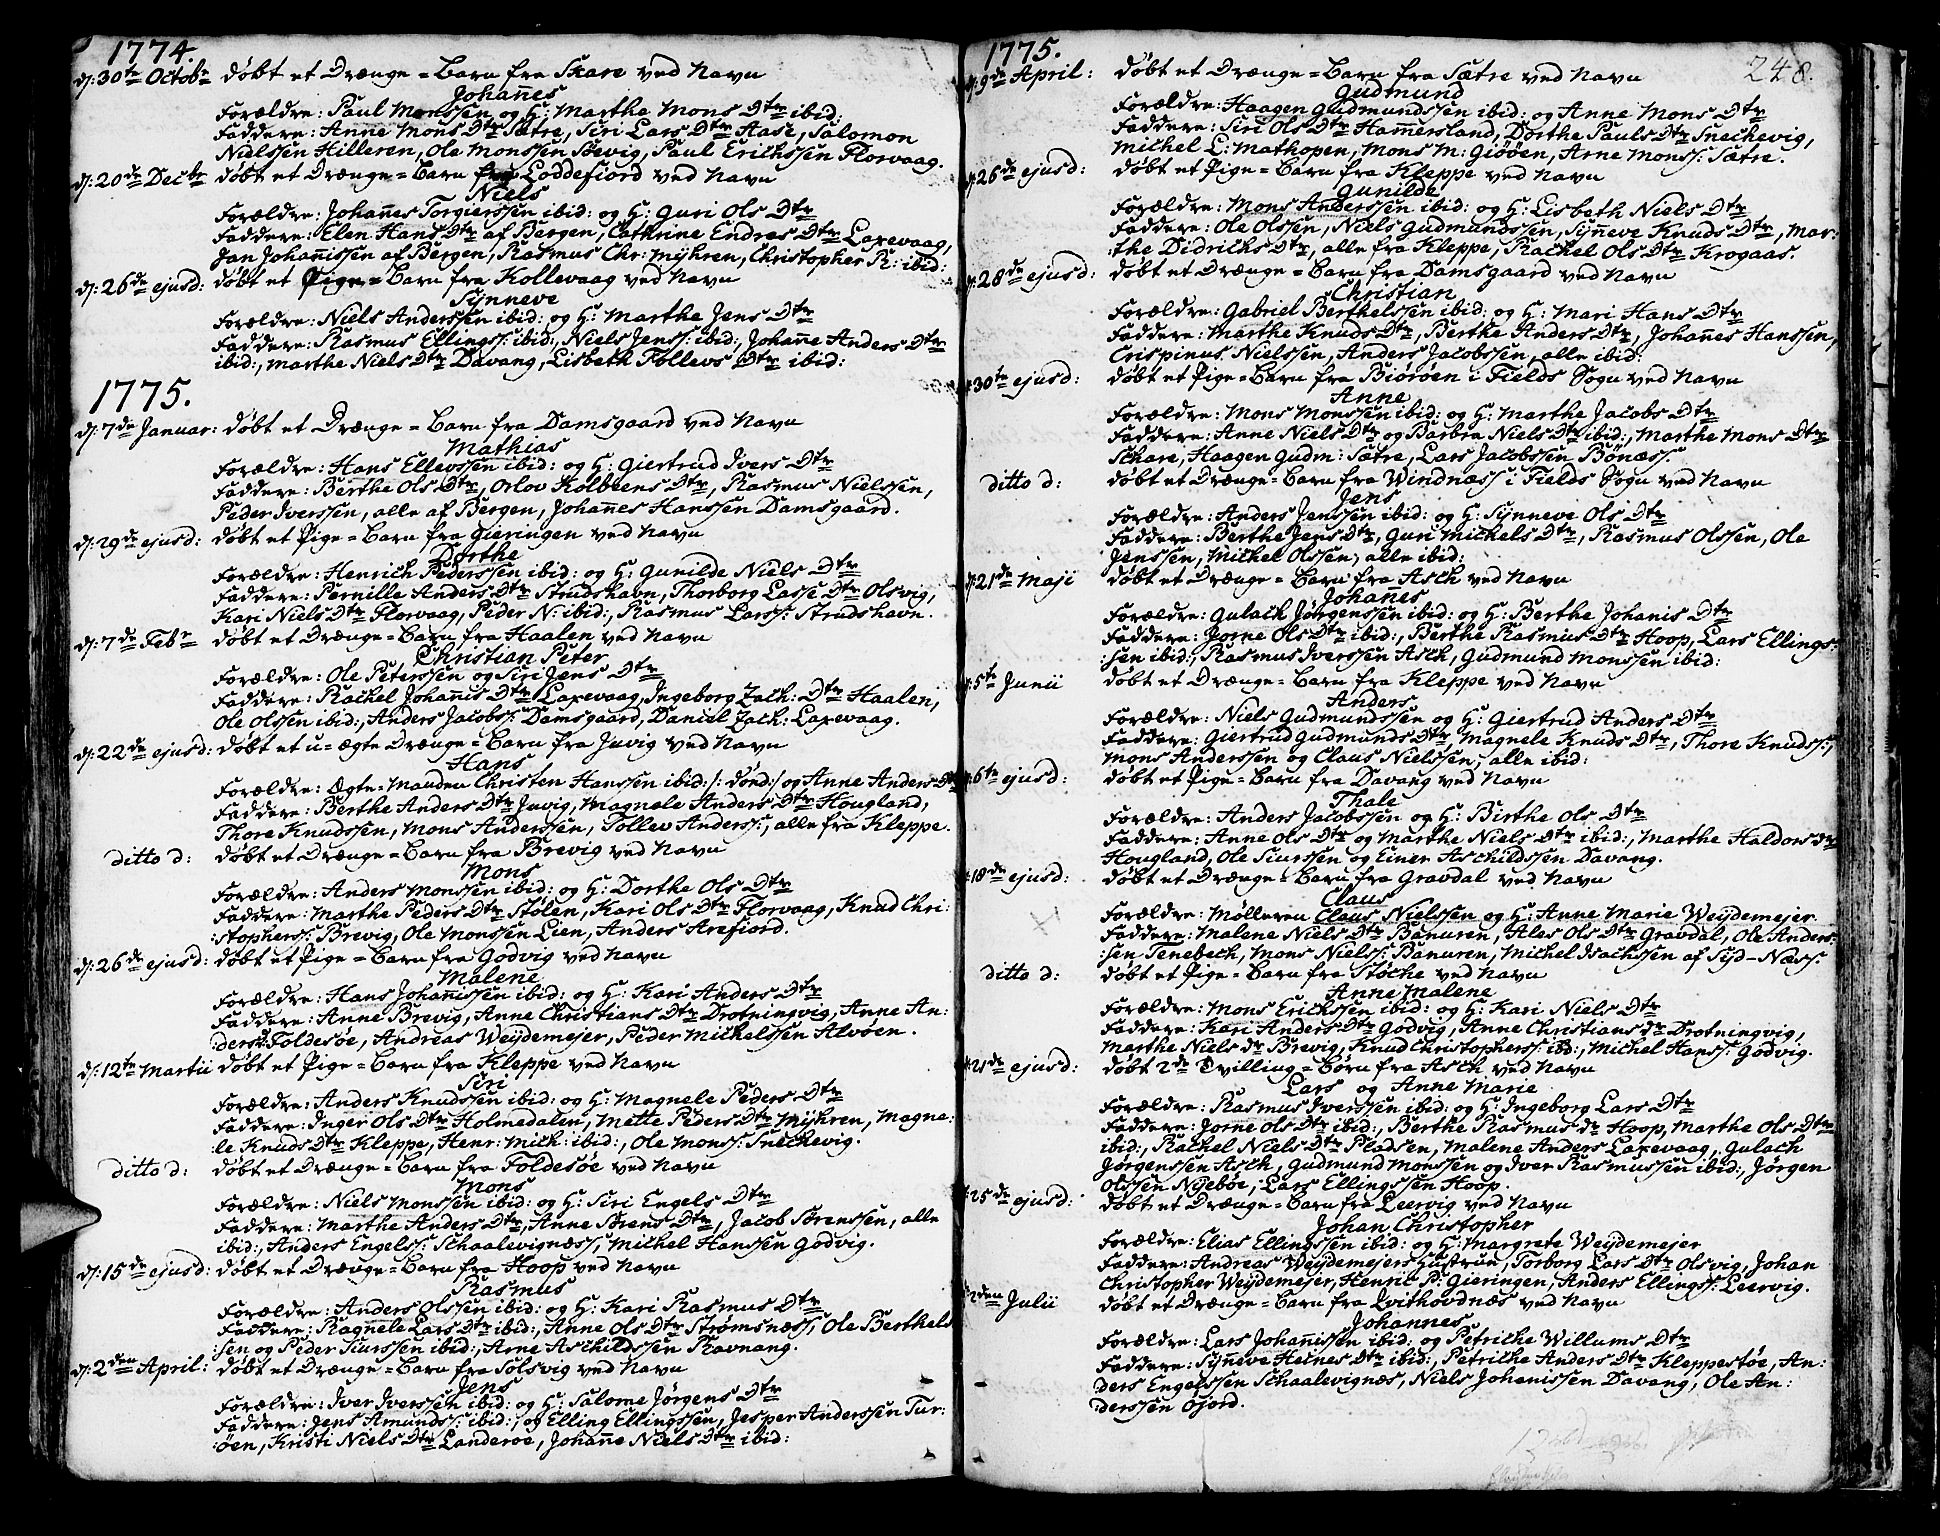 1774.
d: 30te Octobr døbt et Drænge=Barn fra Skare ved Navn
Johañes
Forældre: Paul Monssen og H: Marthe Mons Dtr ibid:
Faddere: Anne Mons Dtr Sætre, Siri Lars Dtr Aase, Salomon
Nielssen Hilleren, Ole Monssen Søevig, Paul Erichssen Florvaag.
d: 20de Decbr døbt et Drænge=Barn fra Loddefiord ved Navn
Niels
Forældre: Johañes Torgierssen ibid: og H: Guri Ols Dtr
Faddere: Elen Hans Dtr af Bergen, Cathrine Endres Dtr Laxevaag,
Jan Johañissen af Bergen, Rasmus Chr: Mÿhren, Christopher R: ibid:
d: 26de ejusd: døbt et Pige=Barn fra Kollevaag ved Navn
Sÿnneve
Forældre: Niels Anderssen ibid: og H: Marthe Jens Dtr
Faddere: Rasmus Ellings: ibid:, Niels Jenss: ibid:, Johañe Anders Dtr
ibid:, Marthe Niels Dtr Davang, Lisbeth Tollevs Dtr ibid:
1775.
d: 7de Januar: døbt et Drænge=Barn fra Damsgaard ved Navn
Mathias
Forældre: Hans Ellevssen ibid: og H: Giertrud Ivers Dtr
Faddere: Berthe Ols Dtr, Orlov Kolbeens Dtr, Rasmus Nielssen,
Peder Iverssen, alle af Bergen, Johañes Hanssen Damsgaard.
d: 29de ejusd: døbt et Pige=Barn fra Gieringen ved Navn
Dorthe
Forældre: Henrich Pederssen ibid: og H: Gunilde Niels Dtr
Faddere: Pernille Anders Dtr Strudshavn, Thorborg Lasse Dtr Olsvig,
Kari Niels Dtr Florvaag, Peder N: ibid:, Rasmus Larss: Strudshavn.
d: 7de Febr døbt et Drænge=Barn fra Haalen ved Navn
Christian Peter
Forældre: Ole Peterssen og Siri Jens Dtr
Faddere: Rachel Johañis Dtr Laxevaag, Ingeborg Zach: Dtr Haalen,
Ole Olssen ibid:, Anders Jacobs: Damsgaard, Daniel Zach: Laxevaag.
d: 22de ejusd: døbt et u=ægte Drænge=Barn fra Juvig ved Navn
Hans
Forældre: Ægte=Manden Christen Hanssen ibid: /: dönd :/ og Anne Anders Dtr
Faddere: Berthe Anders Dtr Juvig, Magnele Anders Dtr Hougland,
Thore Knudssen, Mons Anderssen, Tollev Anderss:, alle fra Kleppe.
ditto d: døbt et Drænge=Barn fra Brevig ved Navn
Mons
Forældre: Anders Monssen ibid: og H: Dorthe Ols Dtr
Faddere: Marthe Peders Dtr Stølen, Kari Ols Dtr Florvaag, Knud Chri:
:stophers: Brevig, Ole Monssen Lien, Anders Arefiord.
d: 26de ejusd: døbt et Pige=Barn fra Godvig ved Navn
Malene
Forældre: Hans Johañissen ibid: og H: Kari Anders Dtr
Faddere: Anne Brevig, Anne Christians Dtr Drotningvig, Anne An:
:ders D: Foldesøe, Andreas Weÿdemejer, Peder Michelssen Alvøen.
d: 12te Martii døbt et Pige=Barn fra Kleppe ved Navn
Siri
Forældre: Anders Knudssen ibid: og H: Magnele Peders Dtr
Faddere: Inger Ols Dtr Holmedalen, Mette Peders Dtr Mÿhren, Magne:
le Knuds Dtr Kleppe, Henr: Mich: ibid:, Ole Mons: Snechevig.
ditto d: døbt et Drænge=Barn fra Foldesøe ved Navn
Mons
Forældre: Niels Monssen ibid: og H: Siri Engels Dtr
Faddere: Marthe Anders Dtr, Anne Sørens Dtr, Jacob Sørenssen, alle
ibid:, Anders Engels: Schaalevignæss, Michel Hanssen Godvig.
d: 15de ejusd: døbt et Drænge=Barn fra Hoop ved Navn
Rasmus
Forældre: Anders Olssen ibid: og H: Kari Rasmus Dtr
Faddere: Ragnele Lars Dtr ibid:, Anne Ols Dtr Strømsnæss, Ole Berthels
:sen og Peder Siurssen ibid:, Arne Aschildssen Ravnang.
d: 2den April: døbt et Drænge=Barn fra Solsvig ved Navn
Jens
Forældre: Iver Iverssen ibid: og H: Salome Jørgens Dtr
Faddere: Jens Amunds: ibid:, og Elling Ellingssen, Jesper Anderssen Tur:
:øen, Kristi Niels Dtr Landeroe, Johañe Niels Dtr ibid:
1775.
248.
d: 9de April: døbt et Drænge=Barn fra Sætre ved Navn
Gudmund
Forældre: Haagen Gudmundssen ibid: og Anne Mons Dtr
Faddere: Siri Ols Dtr Hamersland, Dorthe Pauls Dtr Snechevig,
Michel L: Mathopen, Mons M: Giøøen, Arne Mons: Sætre.
d: 26de ejusd: døbt et Pige=Barn fra Kleppe ved Navn
Gunilde
Forældre: Mons Anderssen ibid: og H: Lisbeth Niels Dtr
Faddere: Ole Olssen, Niels Gudmundssen, Sÿneve Knuds Dtr, Mar:
the Didrichs Dtr, alle fra Kleppe, Rachel Ols Dtr Krogaas.
d: 28de ejusd: døbt et Drænge=Barn fra Damsgaard ved Navn
Christian
Forældre: Gabriel Berthelssen ibid: og H: Mari Hans Dtr
Faddere: Marthe Knuds Dtr, Berthe Anders Dtr, Johañes Hanssen,
Crispinus Nielssen, Anders Jacobssen, alle ibid:
30te ejusd: døbt et Pige=Barn fra Biørøen i Fields Sogn ved Navn
Anne
Forældre: Mons Monssen ibid: og H: Marthe Jacobs Dtr
Faddere: Anne Niels Dtr og Barbra Niels Dtr ibid:, Marthe Mons Dtr
Schare, Haagen Gudm: Sætre, Lars Jacobssen Bønæss:
ditto d: døbt et Drænge=Barn fra Windnæss i Fields Sogn ved Navn
Jens
Forældre: Anders Jenssen ibid: og H: Sÿnneve Ols Dtr
Faddere: Berthe Jens Dtr, Guri Michels Dtr, Rasmus Olssen, Ole
Jenssen, Michel Olssen, alle ibid:
d: 21de Maji døbt et Drænge=Barn fra Asch ved Navn
Johañes
Forældre: Gulach Jørgenssen ibid: og H: Berthe Johanis Dtr
Faddere: Jorne Ols Dtr ibid:, Berthe Rasmus Dtr Hoop, Lars Ellings:
:sen ibid:, Rasmus Iverssen Asch, Gudmund Monssen ibid:
d: 5te Junii døbt et Drænge=Barn fra Kleppe ved Navn
Anders
Forældre: Niels Gudmundssen og H: Giertrud Anders Dtr
Faddere: Giertrud Gudmunds Dtr, Magnele Knuds Dtr, Thore Knudss:,
Mons Anderssen og Claus Nielssen, alle ibid:
6te ejusd: døbt et Pige=Barn fra Davang ved Navn
Thale
Forældre: Anders Jacobssen og H: Birthe Ols Dtr
Faddere: Anne Ols Dtr og Marthe Niels Dtr ibid:, Marthe Haldors Dtr
Hougland, Ole Siurssen og Einer Aschildssen Davang.
18de ejusd: døbt et Drænge=Barn fra Gravdal ved Navn
Claus
Forældre: Mølleren Claus Nielssen og H: Anne Marie Weÿdemejer
Faddere: Malene Niels Dtr Banuren, Ales Ols Dtr Gravdal, Ole Anders:
:sen Tenebech, Mons Niels: Banuren, Michel Isachssen af Sÿd-Næss:
ditto d: døbt et Pige=Barn fra Støche ved Navn
Anne Malene
Forældre: Mons Erichssen ibid: og H: Kari Niels Dtr
Faddere: Kari Anders Dtr Godvig, Anne Christians dr Drotningvig,
Marthe Niels dr Brevig, Knud Christophers: ibd:, Michel Hans: Godvig.
21de ejusd: døbt 2de Tvilling=Børn fra Asch ved Navn
Lars og Anne Marie
Forældre: Rasmus Iverssen ibid: og H: Ingeborg Lars Dtr
Faddere: Jorne Ols Dtr ibid:, Berthe Rasmus dr Hoop, Marthe Ols Dtr
ibid:, Rachel Niels Dtr Pladsen, Malene Anders Laxevaag, Gulach
Jørgenssen Asch, Gudmund Monssen og Iver Rasmussen ibid:, Jørgen
Olssen Nÿebøe, Lars Ellingssen Hoop.
25de ejusd: døbt et Drænge=Barn fra Leervig ved Navn
Johan Christopher
Forældre: Elias Ellingssen ibid: og H: Margrete Weÿdemejer
Faddere: Andreas Weÿdemejers Hustrue, Torborg Lars Dtr Olsvig, Johan
Christopher Weÿdemejer, Henric P: Gieringen, Anders Ellings: Leervig.
2den Julii døbt et Drænge=Barn fra Qvithovdnæs ved Navn
Johannes
Forældre: Lars Johañissen ibid: og Petriche Willums Dtr
Faddere: Sÿneve Heines Dtr ibid:, Petriche Anders Dtr Kleppestøe, An:
ders Engelssen Schaalevignæs, Niels Johanissen Davang, Ole An:
derssen Giord.